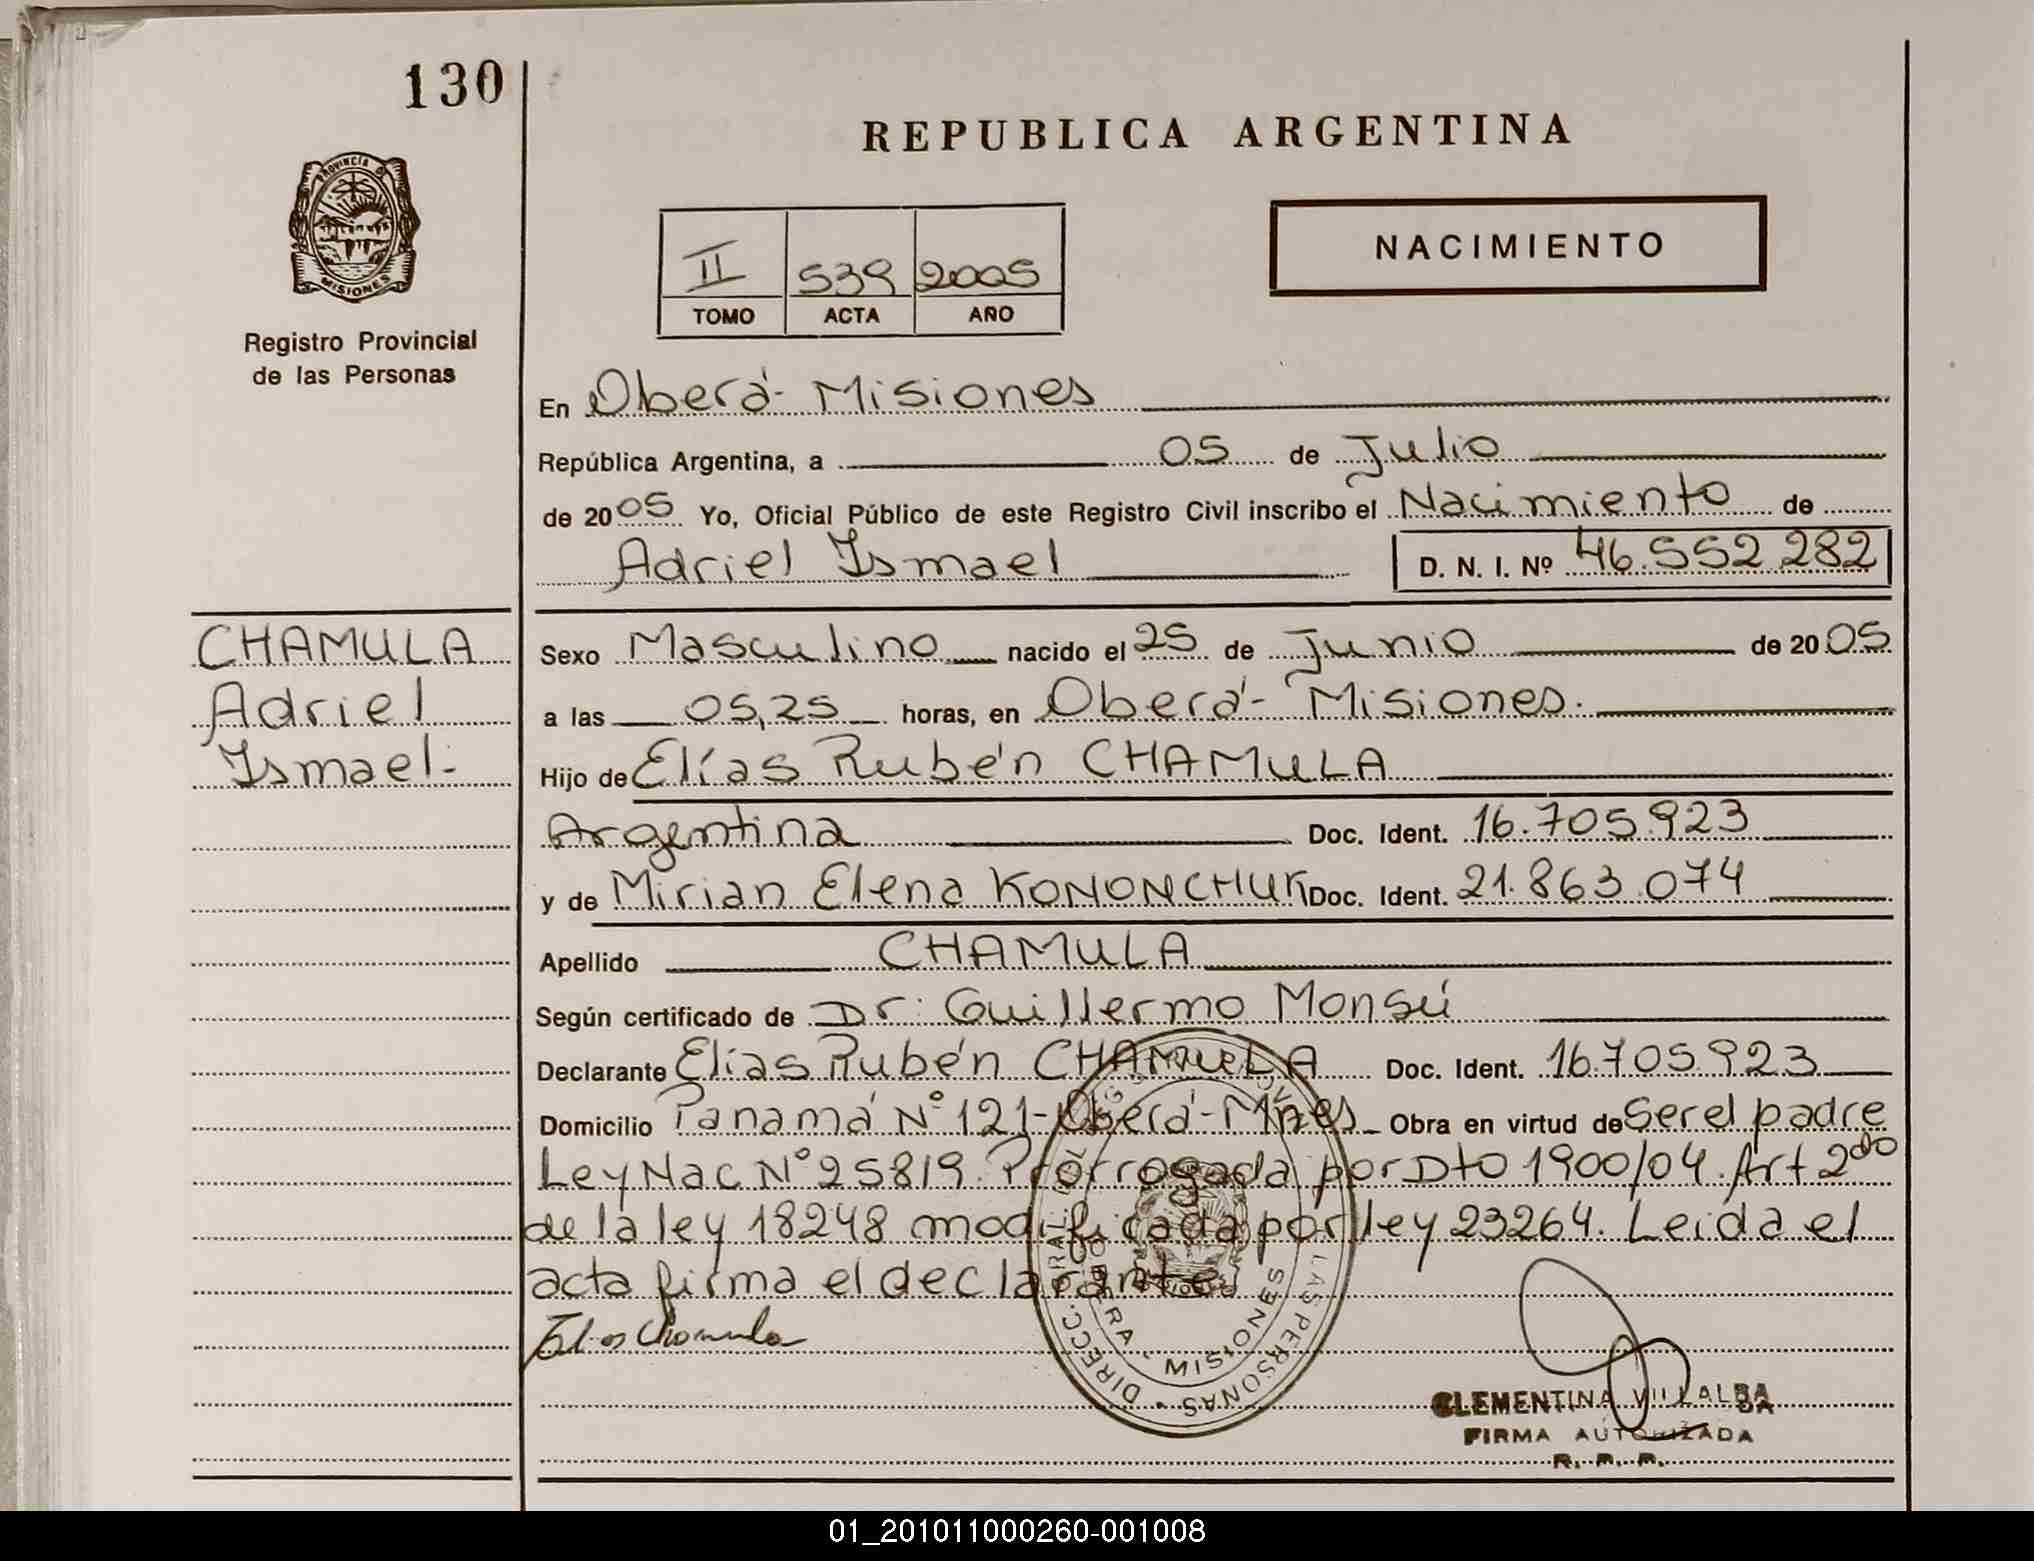 130
REPUBLICA ARGENTINA
PROVINCIA DE
MISIONES
Registro Provincial
de las Personas
II 539 2005
TOMO ACTA AÑO
NACIMIENTO
En Oberá - Misiones
República Argentina, a 05 de Julio
de 2005 Yo, Oficial Público de este Registro Civil inscribo el Nacimiento de
Adriel Ismael D. N. I. Nº 46.552.282
CHAMULA
Adriel
Ismael.-
Sexo Masculino nacido el 25 de Junio de 2005
a las 05,25 horas, en Oberá - Misiones.
Hijo de Elías Rubén CHAMULA
Argentina Doc. Ident. 16.705.923
y de Mirian Elena KONONCHUK Doc. Ident. 21.863.074
Apellido CHAMULA
Según certificado de Dr. Guillermo Monsú
Declarante Elías Rubén CHAMULA Doc. Ident. 16.705.923
Domicilio Panamá Nº 121 - Oberá - Mnes Obra en virtud de Ser el padre
Ley Nac Nº 25819. Prorrogada por Dto 1900/04. Art 2do
de la ley 18248 modificada por ley 23264. Leida el
acta firma el declarante.
Elias Chamula
DIRECC. GRAL. LAS PERSONAS
MISIONES
CLEMENTINA VILLALBA
FIRMA AUTORIZADA
R. P. P.
01_201011000260-001008